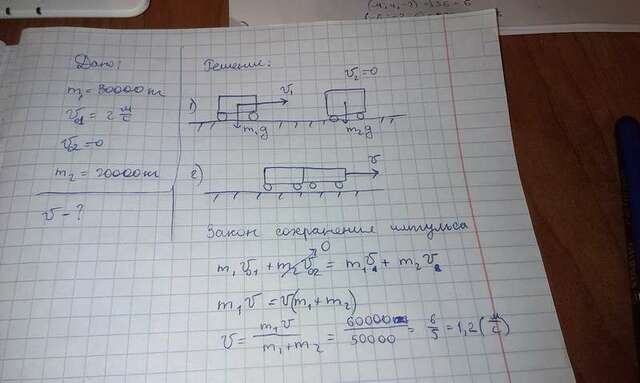 Дано:
m₁ = 30000 кг
v₀₁ = 2 м/с
v₀₂ = 0
m₂ = 20000 кг
v - ?
Решение:
1)
v₁
v₂ = 0
m₁g
m₂g
2)
v
Закон сохранения импульса
0
m₁v₀₁ + m₂v₀₂ = m₁v₁ + m₂v₂
m₁v = v(m₁ + m₂)
v = m₁v / (m₁ + m₂) = 60000 / 50000 = 6/5 = 1,2 (м/с)